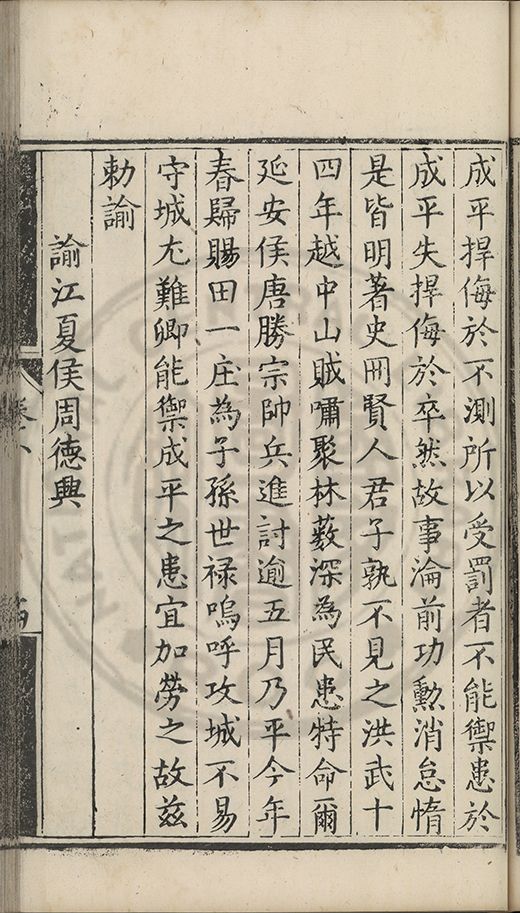 成平捍侮於不測所以受罰者不能禦患於
成平失捍侮於卒然故事淪前功勲消怠惰
是皆明著史冊賢人君子孰不見之洪武十
四年越中山賊嘯聚林藪深為民患特命爾
延安侯唐勝宗帥兵進討逾五月乃平今年
春歸賜田一庄為子孫世禄嗚呼攻城不易
守城尢難卿能禦成平之患宜加勞之故兹
勅諭
諭江夏侯周徳興